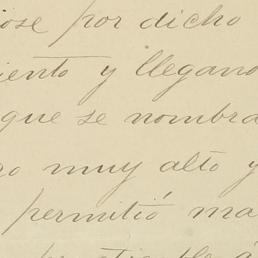 iose por dicho
iento y llegano
que se nombra
go muy alto y
permitió ma